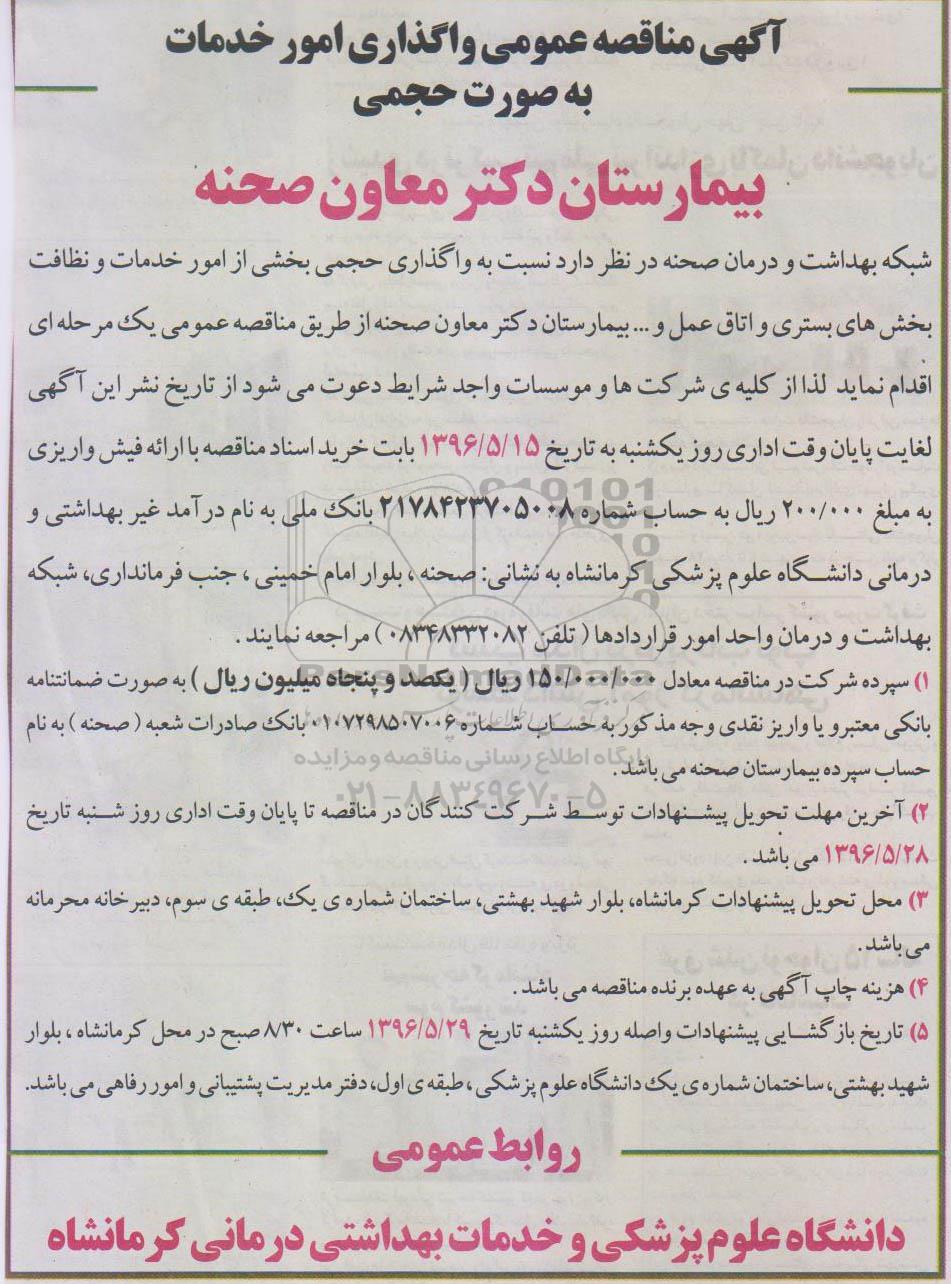 آگهی مناقصه عمومی واگذاری امور خدمات
به صورت حجمی
بیمارستان دکتر معاون صحنه
شبکه بهداشت و درمان صحنه در نظر دارد نسبت به واگذاری حجمی بخشی از امور خدمات و نظافت
بخش های بستری و اتاق عمل و ... بیمارستان دکتر معاون صحنه از طریق مناقصه عمومی یک مرحله ای
اقدام نماید لذا از کلیه ی شرکت ها و موسسات واجد شرایط دعوت می شود از تاریخ نشر این آگهی
لغایت پایان وقت اداری روز یکشنبه به تاریخ ۱۳۹۶/۵/۱۵ بابت خرید اسناد مناقصه با ارائه فیش واریزی
به مبلغ ۲۰۰/۰۰۰ ریال به حساب شماره ۲۱۷۸۴۲۳۷۰۵۰۰۸ بانک ملی به نام درآمد غیر بهداشتی و
درمانی دانشگاه علوم پزشکی کرمانشاه به نشانی: صحنه ، بلوار امام خمینی ، جنب فرمانداری، شبکه
بهداشت و درمان واحد امور قراردادها ( تلفن ۰۸۳۴۸۳۳۲۰۸۲ ) مراجعه نمایند .
۱) سپرده شرکت در مناقصه معادل ۱۵۰/۰۰۰/۰۰۰ ریال ( یکصد و پنجاه میلیون ریال ) به صورت ضمانتنامه
بانکی معتبر و یا واریز نقدی وجه مذکور به حساب شماره ۰۱۰۷۲۹۸۵۰۷۰۰۶ بانک صادرات شعبه ( صحنه ) به نام
حساب سپرده بیمارستان صحنه می باشد .
۲) آخرین مهلت تحویل پیشنهادات توسط شرکت کنندگان در مناقصه تا پایان وقت اداری روز شنبه تاریخ
۱۳۹۶/۵/۲۸ می باشد .
۳) محل تحویل پیشنهادات کرمانشاه، بلوار شهید بهشتی، ساختمان شماره ی یک، طبقه ی سوم، دبیرخانه محرمانه
می باشد .
۴) هزینه چاپ آگهی به عهده برنده مناقصه می باشد .
۵) تاریخ بازگشایی پیشنهادات واصله روز یکشنبه تاریخ ۱۳۹۶/۵/۲۹ ساعت ۸/۳۰ صبح در محل کرمانشاه ، بلوار
شهید بهشتی، ساختمان شماره ی یک دانشگاه علوم پزشکی ، طبقه ی اول، دفتر مدیریت پشتیبانی و امور رفاهی می باشد.
روابط عمومی
دانشگاه علوم پزشکی و خدمات بهداشتی درمانی کرمانشاه
پایگاه اطلاع رسانی مناقصه و مزایده
۰۲۱-۸۸۳۴۹۶۷۰-۵